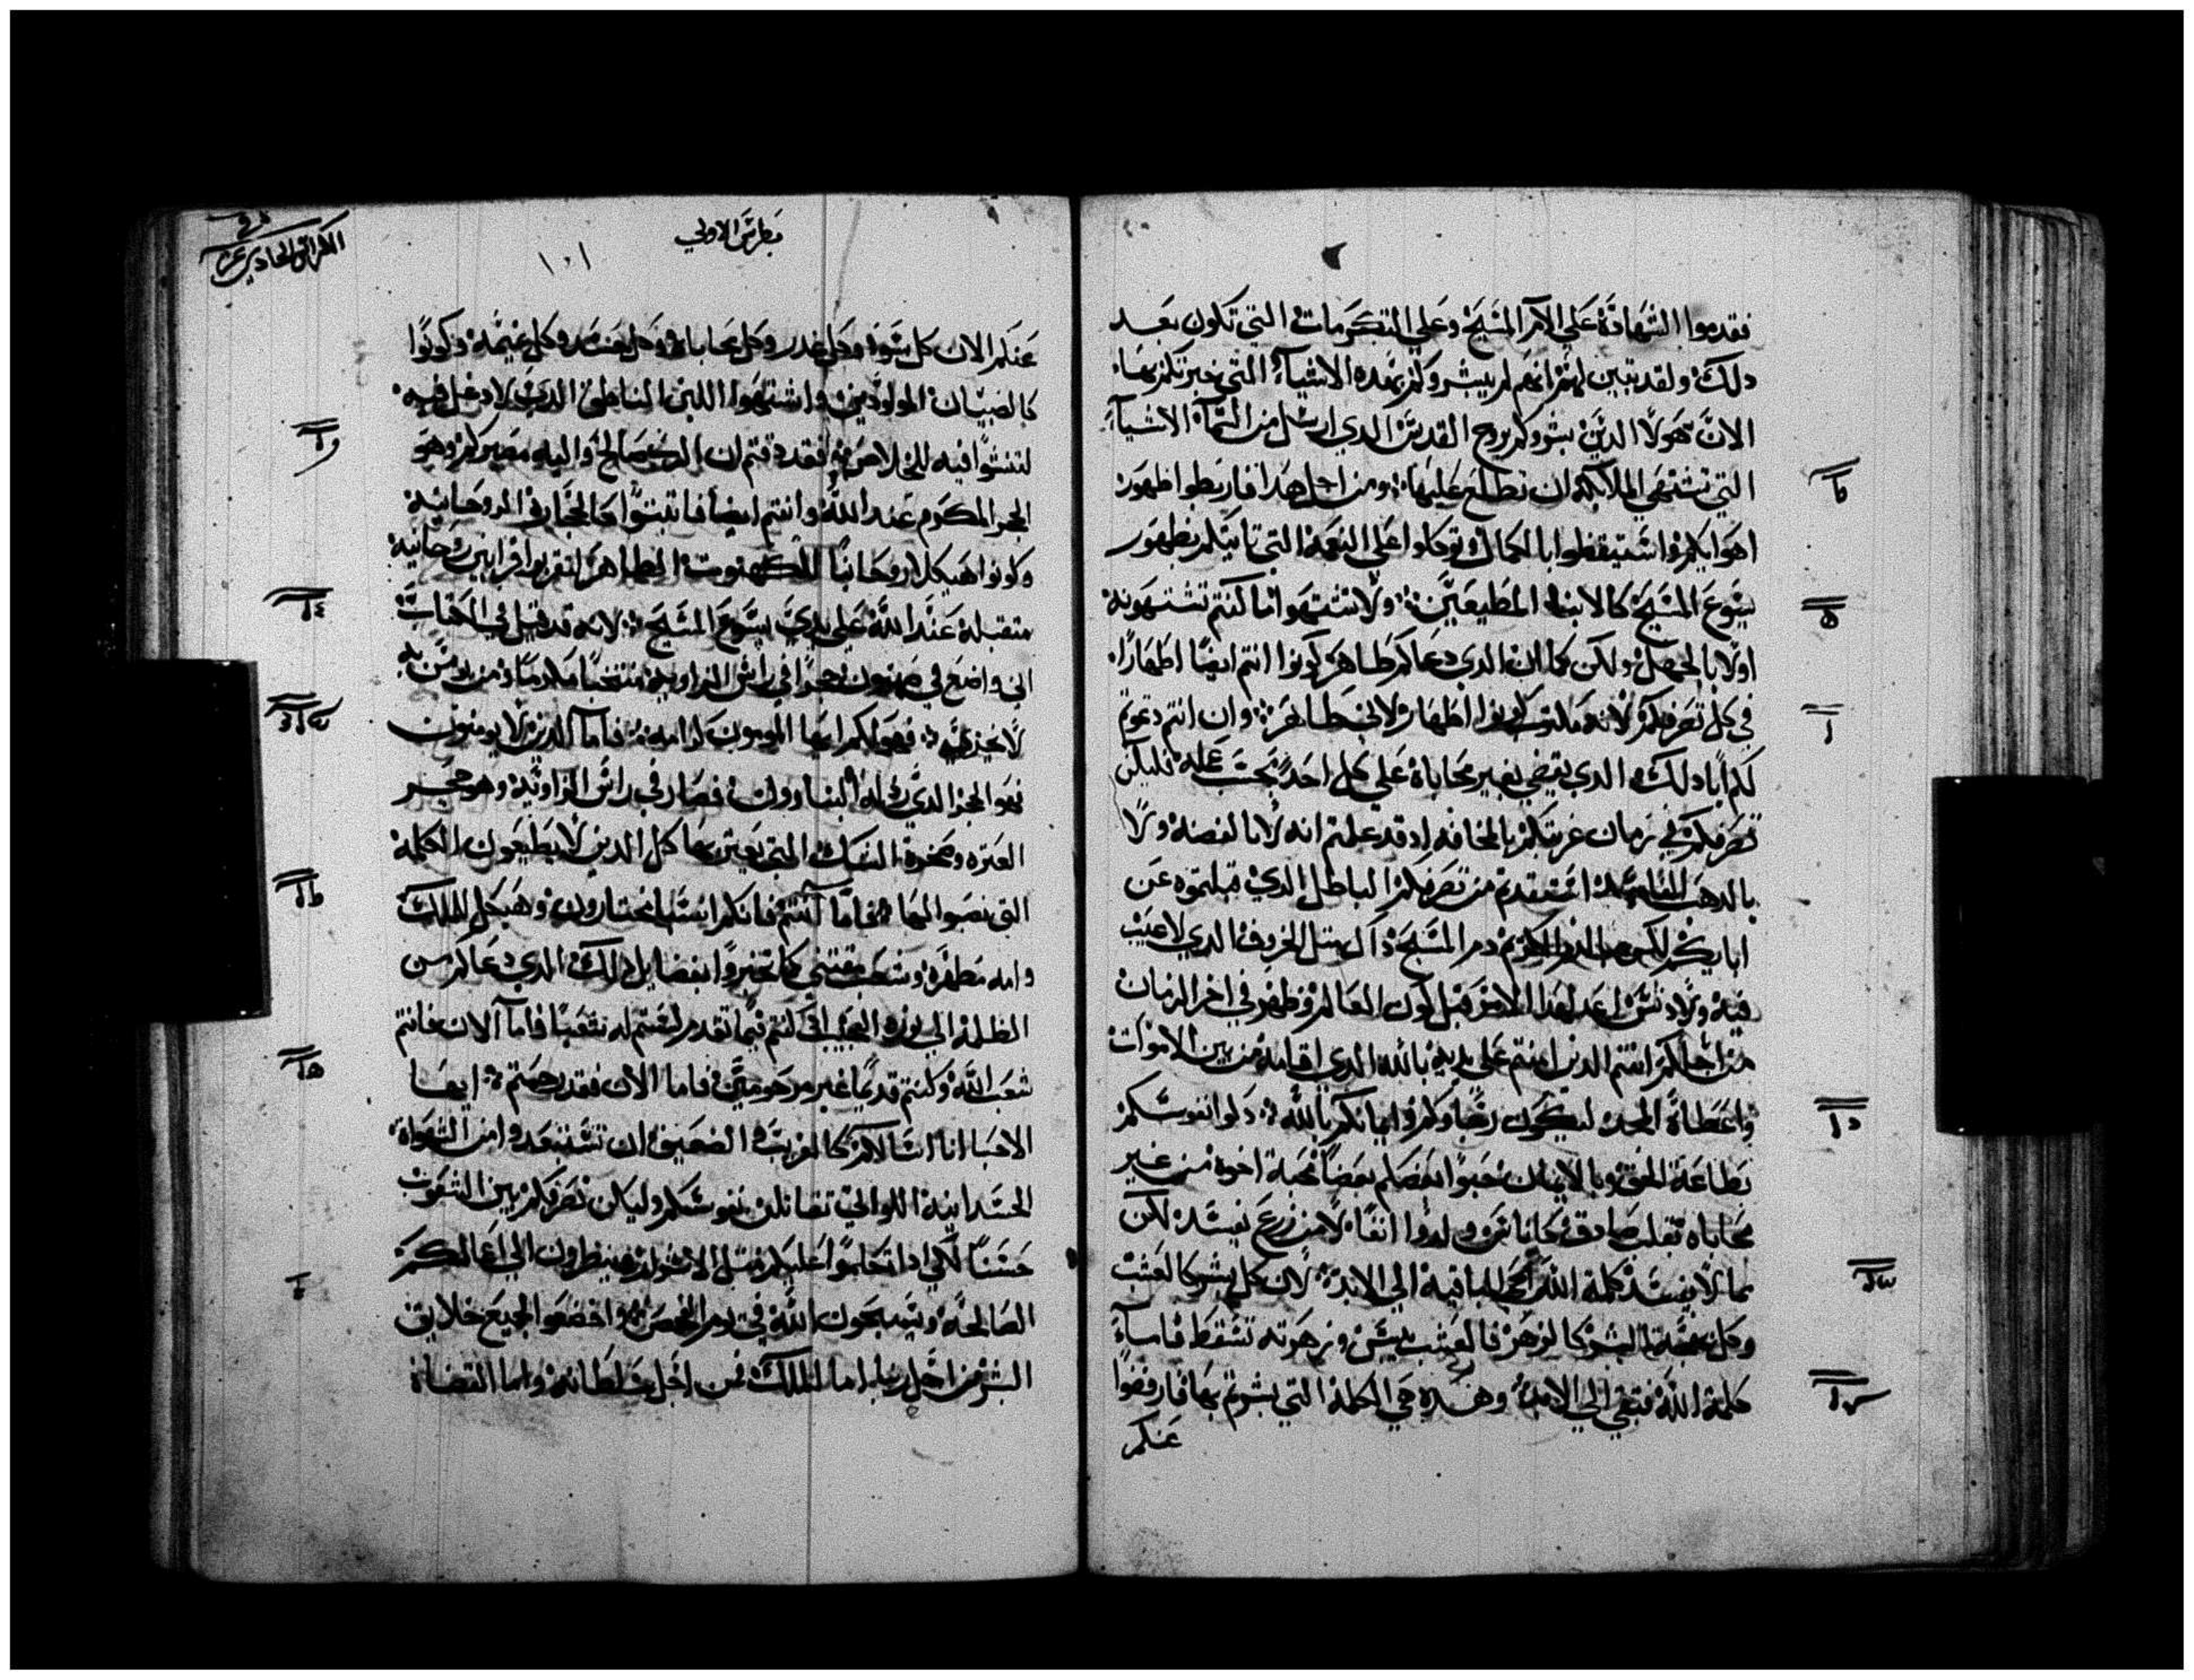 فقدموا الشهادة على الام المسيح وعلى التكرمات التي تكون بعد
دلك ولقد تبين لهم انهم لم يبشروكم بهده الاشياء التي خبرتكم بها
الان هولا الدين بشروكم بروح القدس الدي ارسل من السماء الاشياء
التي تشتهي الملايكة ان تطلع عليها ومن اجل هدا فاربطوا ظهور
اهوايكم واستيقظوا بالكمال وتوكلوا على النعمة التي تاتيكم بظهور
يسوع المسيح كالابناء المطيعين ولا تشتهوا ما كنتم تشتهونه
اولا بالجهل ولكن كما ان الدي دعاكم طاهر كونوا انتم ايضا اطهارا
في كل تصرفكم لانه مكتوب كونوا اطهار لاني طاهر وان انتم دعوتم
لكم ابا دلك الدي يقضي بغير محاباة على كل احد بحسب عمله فليكن
تصرفكم في زمان غربتكم بالمخافه اد قد علمتم انه لا بالفضة ولا
بالدهب اعتقدتم من تصرفكم الباطل الدي قبلتموه عن
ابايكم لكن بالدم الكريم دم المسيح داك مثل الخروف الدي لا عيب
فيه ولا دنس اعد لهدا الامر قبل كون العالم وظهر في اخر الزمان
من اجلكم انتم الدين امنتم على يديه بالله الدي اقامه من بين الاموات
واعطاة المجد ليكون رجاوكم وايمانكم بالله زكوا نفوسكم
بطاعة الحق وبالايمان حبوا بعضكم بعضا محبة اخوه من غير
محاباه بقلب صادق كاناس ولدوا انفا لا من زرع يفسد لكن
بما لا يفسد كلمة الله الحي الباقية الى الابد لان كل بشر كالعشب
وكل بشر كالزهر فالعشب ييبس وزهرته تسقط فاما
كلمة الله فتبقي الي الابد وهده هي الكلمة التي بشرتم بها فارفضوا
عنكم
بطرس الاولي
١٠١
الكراس الحادي عشر
عنكم الان كل سوء وكل غدر وكل محاباة وكل حسد وكل نميمة وكونوا
كالصبيان المولودين واشتهوا اللبن الناطق الدي لا دغل فيه
لتنشوا فيه للخلاص فقد دقتم ان الرب صالح واليه مصيركم وهو
الحجر المكرم عند الله وانتم ايضا فابتنوا كالحجارة الروحانية
وكونوا هيكلا روحانيا للكهنوت الطاهر لتقربوا قرابين روحانية
متقبلة عند الله على يدي يسوع المسيح لانه قد قيل في الكتاب
اني واضع في صهيون حجرا في راس الزاوية منتخبا مكرما ومن يومن به
لا يخزى فهو لكم ايها المومنون كرامة فاما الدين لا يومنون
فهو الحجر الدي رذله البناوون فصار في راس الزاوية وهو حجر
العثره وصخرة الشك التي يعثر بها كل الدين لا يطيعون الكلمة
التي نصبوا لها فاما انتم فانكم نسبا مختارون وهيكل الملك
وامه مطهرة وشعب مقتني كما تخبروا بفضايل دلك الدي دعاكم من
الظلمة الي نوره العجيب اد كنتم فيما تقدم لستم له شعبا فاما الان فانتم
شعب الله وكنتم قديما غير مرحومين فاما الان فقد رحمتم ايها
الاحبا انا اسالكم كالغربا والضعيف ان تستبعدوا من الشهواة
الجسدانية اللواتي تقاتلن نفوسكم وليكن تصرفكم بين الشعوب
حسنا لكي ادا تكلموا عليكم مثل الاشرار فينظرون الي اعمالكم
الصالحة ويسبحون الله في يوم الفحص واخضعوا لجميع خلايق
البشر من اجل ربنا اما الملك فمن اجل سلطانه واما القضاة